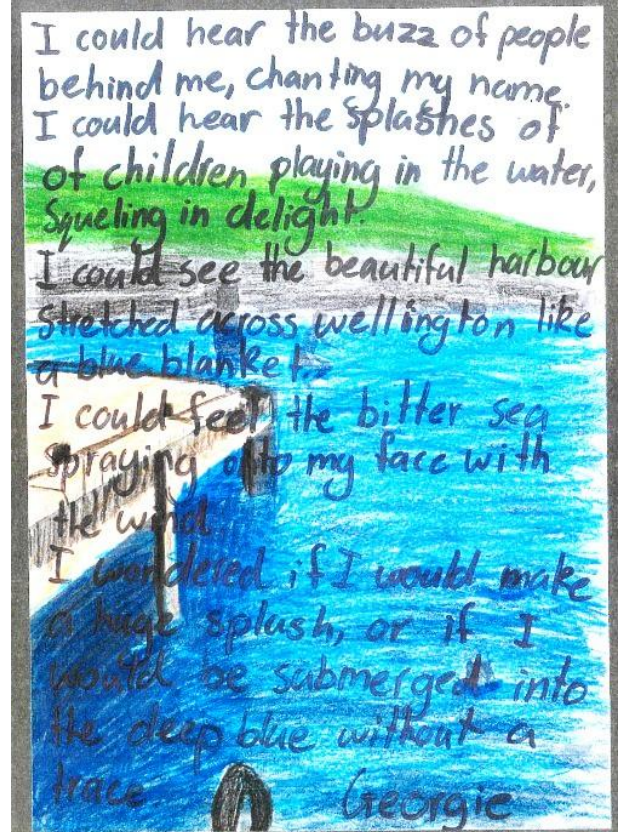 I could hear the buzz of people
behind me, chanting my name.
I could hear the splashes of
of children playing in the water,
Squeling in delight.
I could see the beautiful harbour
stretched across wellington like
a blue blanket.
I could feel the bitter sea
spraying onto my face with
the wind
I wondered if I would make
a huge splash, or if I
would be submerged into
the deep blue without a
trace. Georgie